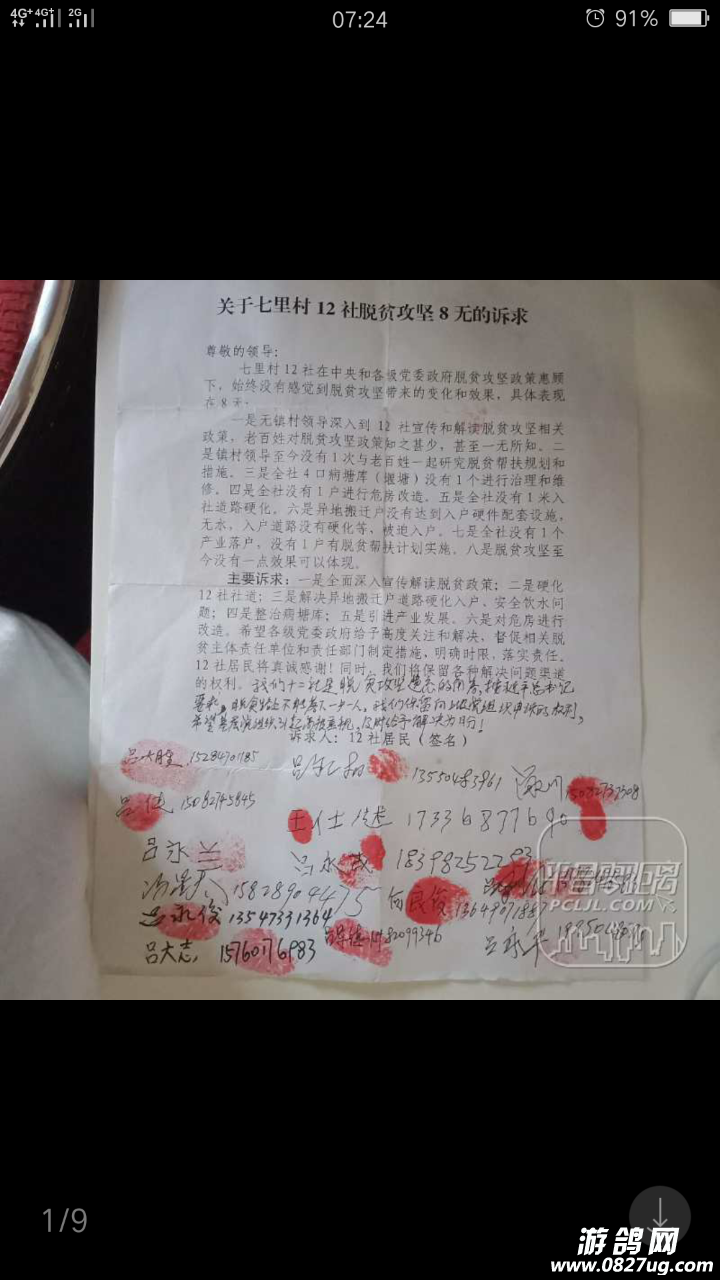 4G+ 4G+ 2G 07:24 91%
关于七里村12社脱贫攻坚8无的诉求
尊敬的领导:
七里村12社在中央和各级党委政府脱贫攻坚政策惠顾
下,始终没有感觉到脱贫攻坚带来的变化和效果,具体表现
在8无:
一是无镇村领导深入到12社宣传和解读脱贫攻坚相关
政策,老百姓对脱贫攻坚政策知之甚少,甚至一无所知。二
是镇村领导至今没有1次与老百姓一起研究脱贫帮扶规划和
措施。三是全社4口病塘库(堰塘)没有1个进行治理和维
修。四是全社没有1户进行危房改造。五是全社没有1米入
社道路硬化。六是异地搬迁户没有达到入户硬件配套设施,
无水,入户道路没有硬化等、被迫入户。七是全社没有1个
产业落户,没有1户有脱贫帮扶计划实施。八是脱贫攻坚至
今没有一点效果可以体现。
主要诉求:一是全面深入宣传解读脱贫政策;二是硬化
12社社道;三是解决异地搬迁户道路硬化入户、安全饮水问
题;四是整治病塘库;五是引进产业发展。六是对危房进行
改造。希望各级党委政府给予高度关注和解决,督促相关脱
贫主体责任单位和责任部门制定措施,明确时限,落实责任。
12社居民将真诚感谢!同时,我们将保留各种解决问题渠道
的权利。我们十二社是脱贫攻坚遗忘的角落,
要求,脱贫路上不能落下一个人。我们保留向上级
希望 及时给予解决为盼!
诉求人:12社居民(签名)
15284901185
13550483961
吕健 15082745845
17336877690
吕永兰
吕永茂 18398252293
15828904475
何良俊
吕永俊 13547331364
吕大志 15760176983
PCLJL.COM
1/9
游鸽网
www.0827ug.com